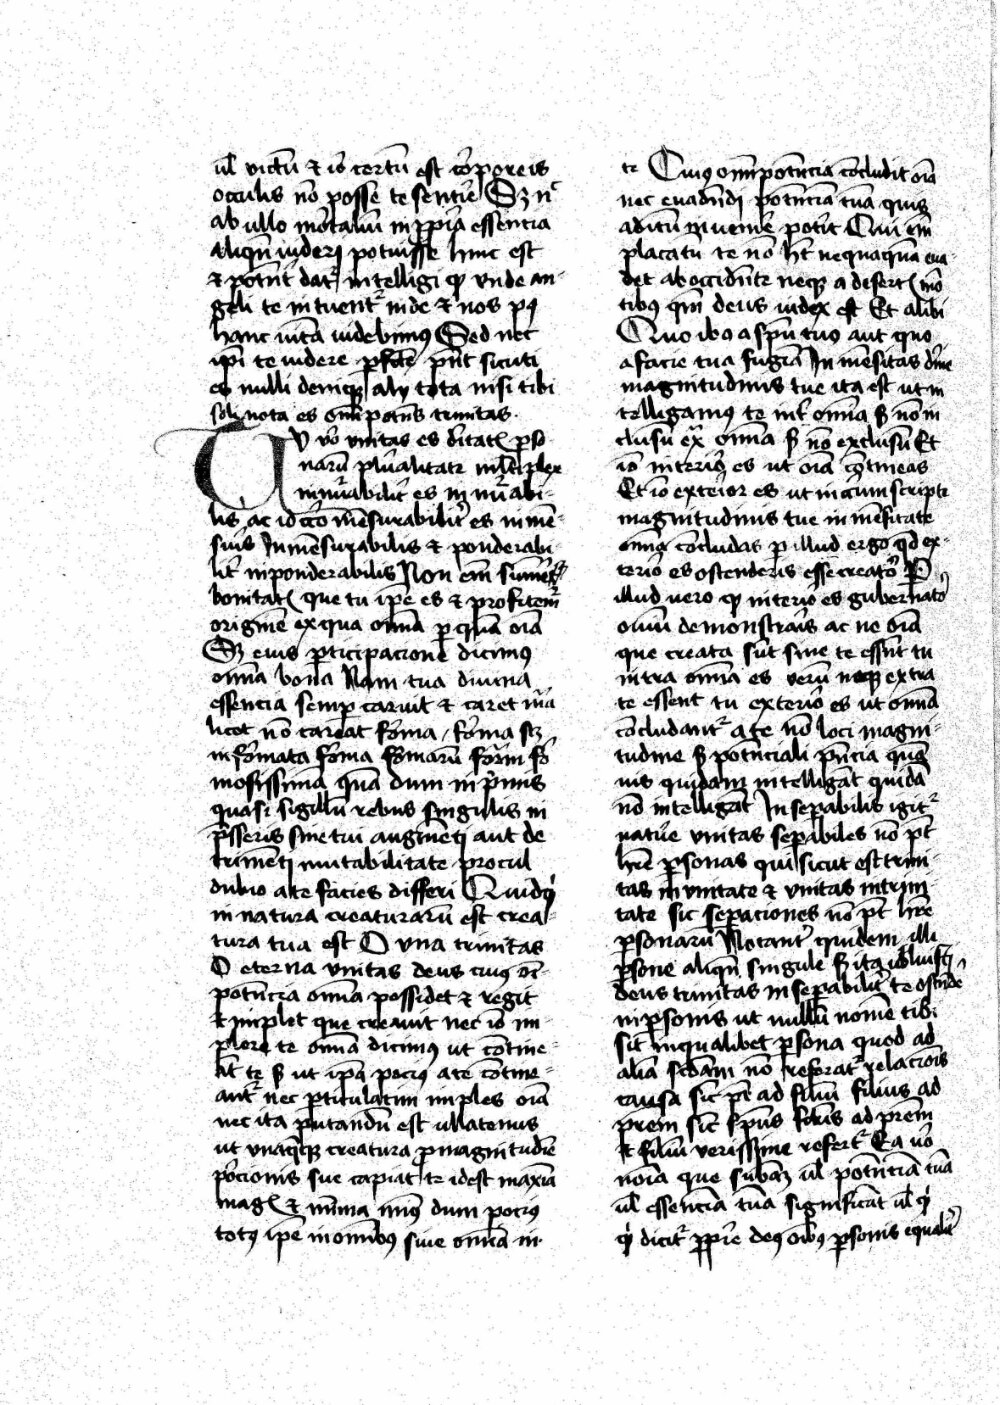 ul̄ victū et iō certū est corporeis
occulis nō posse te sentire Sꝫ nec
ab ullo mortaliū in ꝓpria essencia
aliqn̄ uideri potuisse hinc est
et potn̄t datr̄ intelligi qꝫ unde an-
geli te intuentr̄ inde et nos pꝰ
hanc uitā uidebimꝰ Sed nec
ip̄i te uidere ꝑfcte pn̄t sicuti
es nulli deniqꝫ alij tota nisi tibi
soli nota es omīpotens trinitas
Tu v̄o vnitas es deitatꝭ ꝑso-
narū pluralitate ml̄tiplex
innūabilit̄ es innūabi-
lis ac idcirco mēsurabilit̄ es inmē-
suīs Inmēsurabilis et ponderabi-
lit̄ inponderabilis Non em̄
bonitatꝭ que tu ip̄e es et profitemr̄
originē ex qua oīna ꝑ quā oīa
Sꝫ eius ꝑticipacione dicimꝰ
om̄a bona Nam tua diuina
essencia semꝑ caruit et caret mā
licet nō careat forma forma scꝫ
informata forma formarū for-
mosissima quā dum inpīmis
quasi sigillū rebus singulis in
ꝑsseris sine tui augmēti aut de
trimēti mutabilitate procul
dubio a te facies differri Quidqꝫ
in natura creaturarū est crea-
tura tua est O vna trinitas
O eterna vnitas deus cuiꝰ oī-
potn̄cia om̄a possidet et regit
et implet que creauit nec iō im-
plere te om̄a dicimꝰ ut cōtine-
āt te sꝫ ut ip̄a pociꝰ a te cōtine-
antr̄ nec ꝑticulatim imples oīa
nec ita putandū est ullatenus
ut vnaqꝫqꝫ creatura ꝓ magnitudīe
porcionis sue capiat te idest maxīa
magꝭ et mīma minꝰ dum pociꝰ
totꝰ ip̄e in omībꝰ siue om̄a in
te Cuiꝰ omīpotn̄cia cōcludit oīa
nec euadendi potn̄ciā tuā quis
aditū inuenire potit Qui em̄
placatū te nō ht̄ nequaquā eua-
det ab occidente neqꝫ a desertꝭ mō
tibꝰ qm̄ deus iudex est Et alibi
Quo ibo a spū tuo aut quo
a facie tua fugiā Inmēsitas dīne
magnitudinis tue ita est ut in
telligamꝰ te intr̄ om̄ia sꝫ nō in
clusū exᵃ om̄ia sꝫ nō exclusū Et
iō interior es ut oīa cōtineas
Et iō exterior es ut incircumscripte
magnitudinis tue inmēsitate
om̄ia cōcludas ꝑ illud ergo qd̄ ex-
terior es ostenderis esse creator Ꝑ
illud uero qꝫ interior es gubernator
oīum demonstraris ac ne oīa
que creata sūt sine te essēt tu
intra om̄ia es verū neqꝫ extra
te essent tu exterior es ut om̄ia
cōcludantr̄ a te nō loci magni-
tudine sꝫ potn̄ciali pn̄cia
uis quidam intelligāt quidā
nō intelligāt Inseꝑabilis igitr̄
nature vnitas seꝑabiles nō pt̄
hr̄e ꝑsonas qui sicut est trini
tas in vnitate et vnitas in trini
tate sic seꝑaciones nō pt̄ hr̄e
ꝑsonarū Notantr̄ quidem ille
ꝑsone aliqn̄ singule sꝫ ita uoluisti
deus trinitas inseꝑabilit̄ te ostēdere
in ꝑsonis ut nullū nomē tibi
sit in qualibet ꝑsona quod ad
aliā scd̄am nō referatr̄ relacionis
causa sicut pr̄ ad filiū filius ad
prēm sicut spūs scūs ad prēm
et filiū verissime refertr̄ Ea v̄o
noīa que subām ul̄ potn̄ciā tuā
ul̄ essenciā tuā significāt ul̄ qꝫ
qꝫ dicitr̄ ꝓprie deꝰ oībꝰ ꝑsonis equalit̄